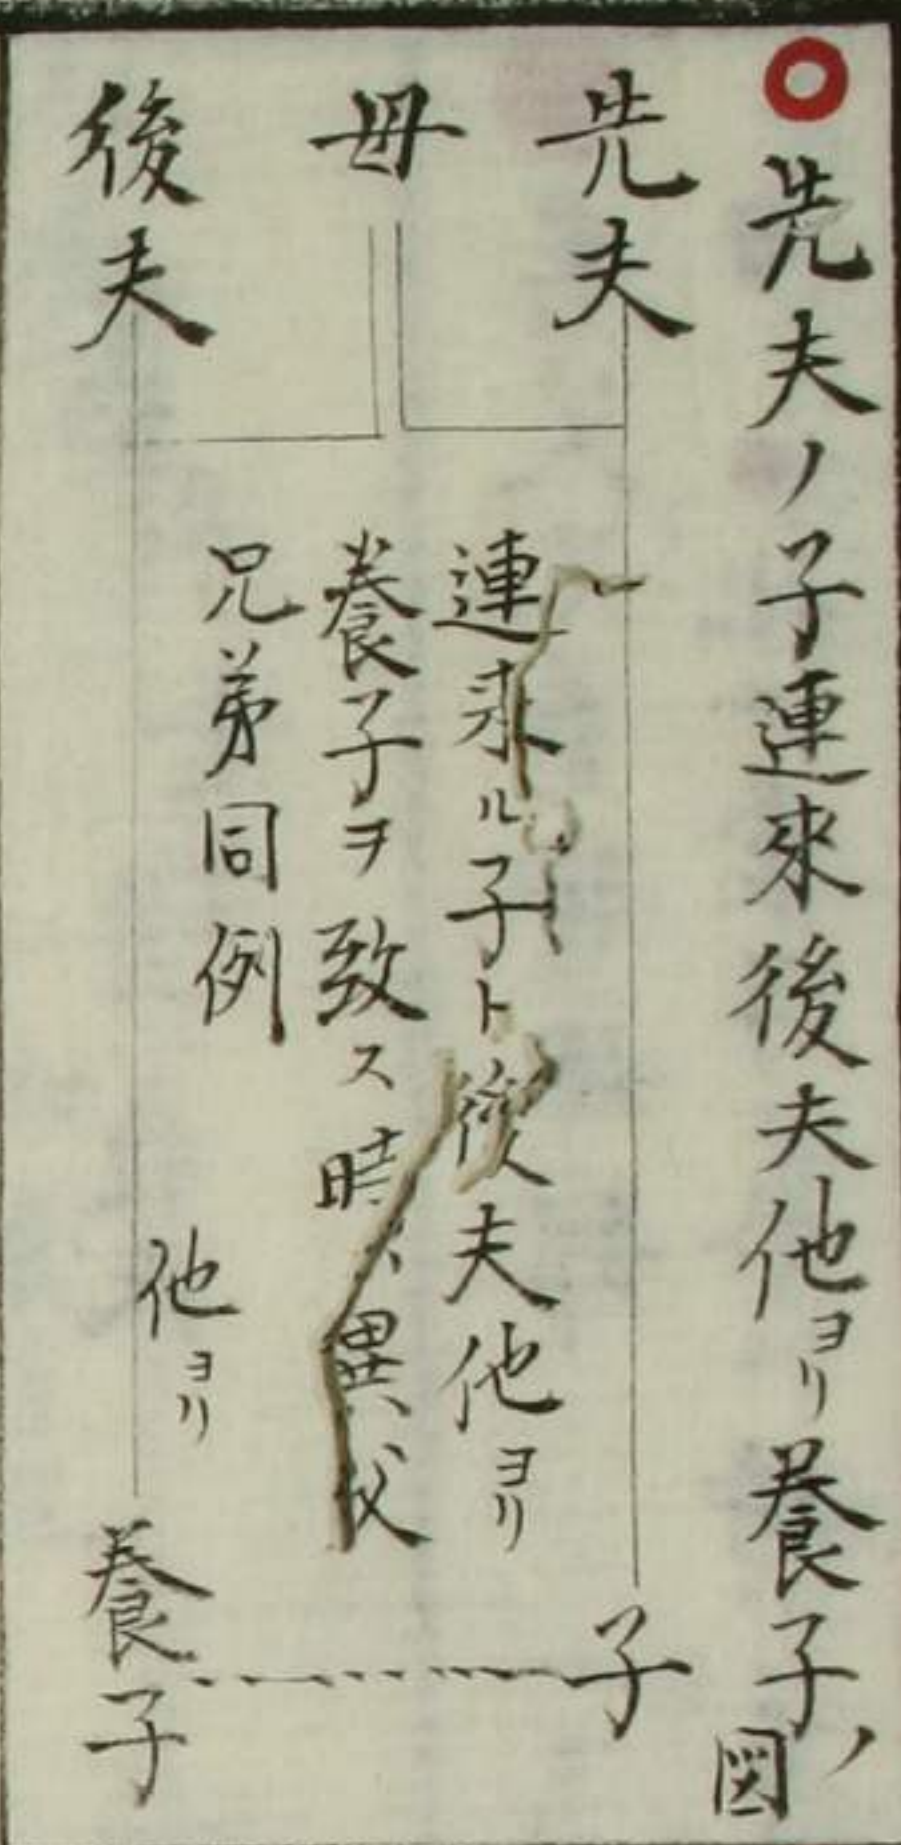 先夫ノ子連来後夫他ヨリ養子ノ図
先夫
母
後夫
連来ル子ト後夫他ヨリ
養子ヲ致ス時ハ異父
兄弟同例
他ヨリ
子
養子